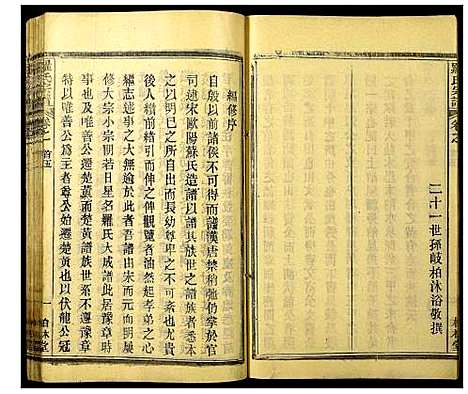 羅氏宗譜
卷之一
二十一世孫岐柏沐浴敬撰
柏林堂
編修序
自殷以前諸侯不可得而譜漢唐禁稍弛仍掌於官
司逮宋歐陽蘇氏造譜以譜其族世之譜族者悉本
之以明已之所自出而長幼尊卑之不可失也尤貴
後人績前引而伸之俾觀覽者油然起孝弟之心
繼志述事之大無逾於此者吾譜由宋而元而明屢
次修大宗小宗前日星名羅氏大成譜此居豫章時
事也及唯善公遷楚黃譜族世系不遵豫章
特以唯善公為王者尊公始遷楚黃也以伏龍公冠
羅氏宗譜
卷之一
首五
柏林堂